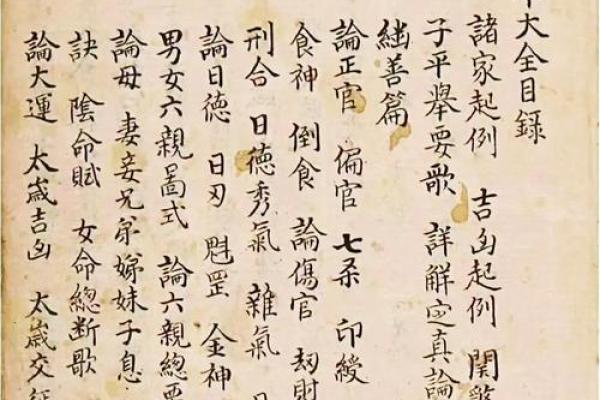 大全目錄
諸家起例 吉凶起例 関
子平舉要歌 詳解定真論
繼善篇
論正官 偏官 七杀 印綬
食神 倒食 論傷官 刼財
刑合 日德秀氣 雜氣
論日德 日刃 魁罡 金神
男女六親啚式 論六親總
論母 妻妾兄弟娣妹子息
訣 陰命賦 女命總断歌
論大運 太歲吉凶 太歲交